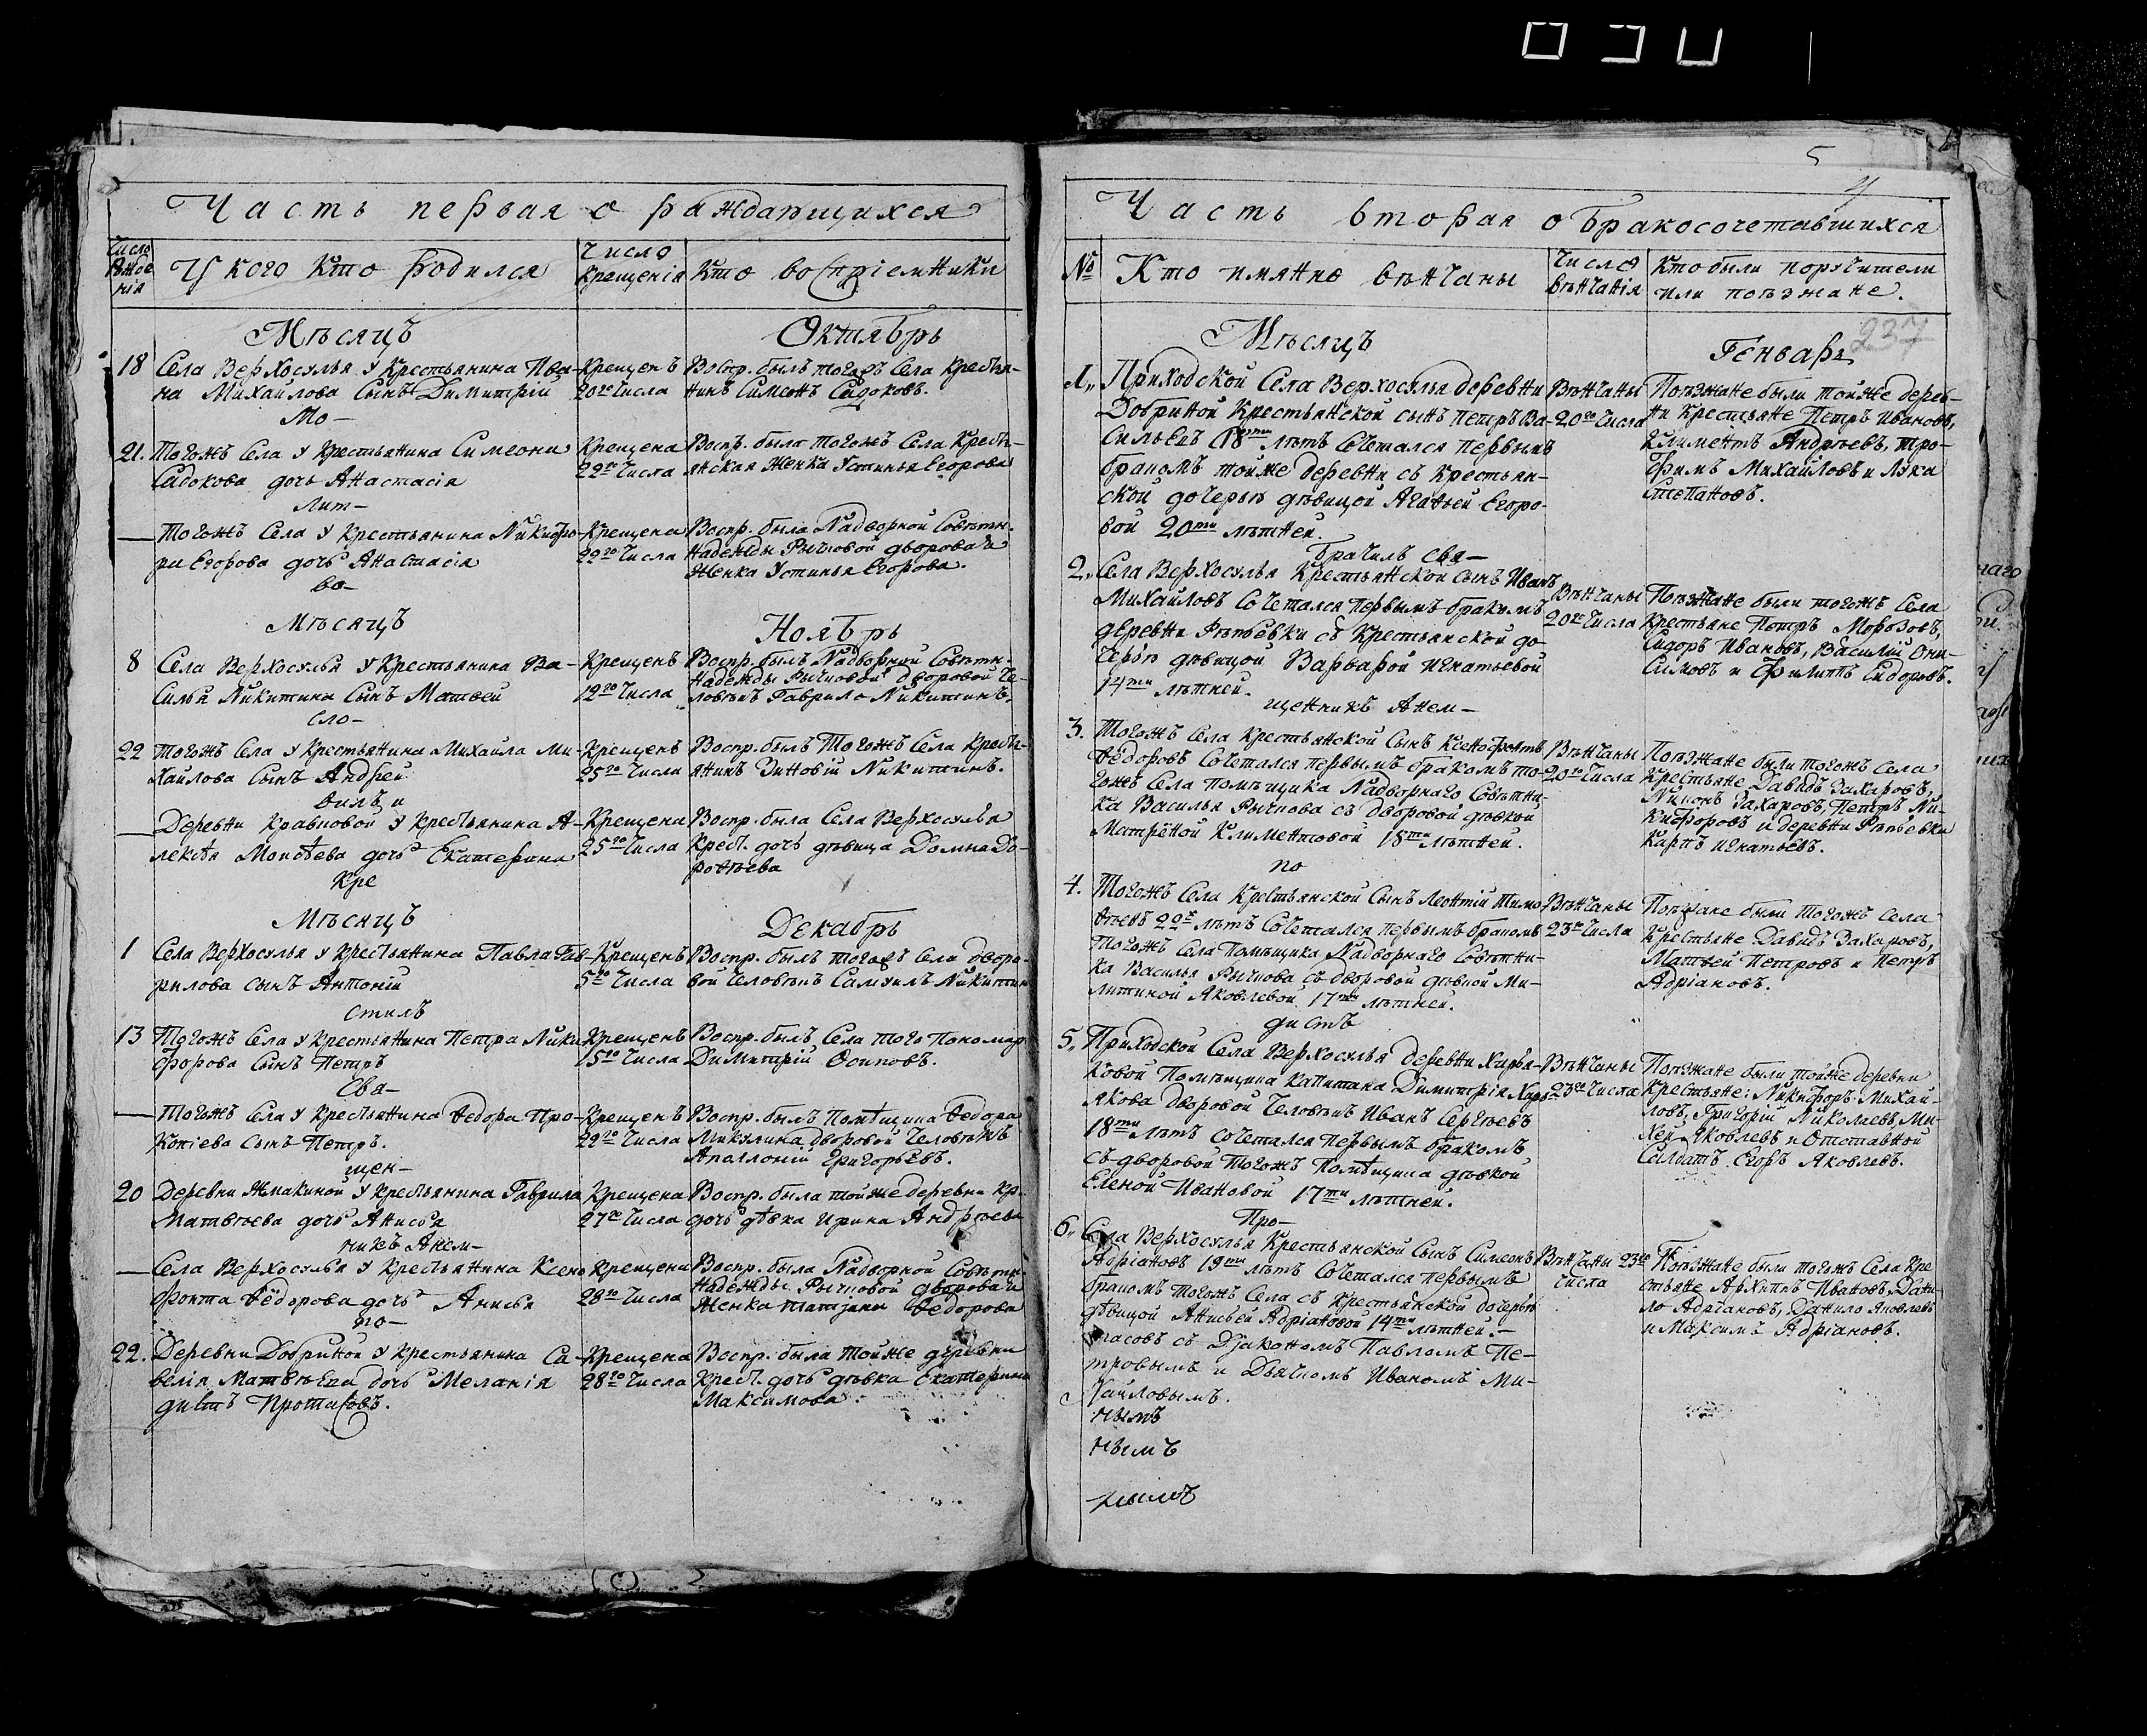 Часть первая о раждающихся
Число рожденія
У кого кто родился
Число крещенія
Кто воспріемники
Мѣсяцъ Октябрь
18 Села Верхосулья у Крестьянина Ива-
на Михайлова Сынъ Димитрій
Крещенъ
20го Числа
Воспр. былъ тогожъ Села Кресть-
нинъ Симеонъ Садоковъ.
Мо-
21. Тогожъ Села у Крестьянина Симеона
Садокова дочь Анастасія
Крещена
22го Числа
Воспр. была тогожъ Села Кресть-
янская Женка Устинья Егорова
лит-
— Тогожъ Села у Крестьянина Никифо-
ра Егорова дочь Анастасія
Крещена
22го Числа
Воспр. была Надворной Совѣтн.
Надежды Рычковой дворовая
Женка Устинья Егорова.
во-
Мѣсяцъ Ноябрь
8 Села Верхосулья у Крестьянина Ва-
силья Никитина Сынъ Матвей
Крещенъ
12го Числа
Воспр. былъ Надворной Совѣтн.
Надежды Рычковой дворовой че-
ловѣкъ Гаврило Никитинъ.
сло-
22 Тогожъ Села у Крестьянина Михайла Ми-
хайлова Сынъ Андрей
Крещенъ
25го Числа
Воспр. былъ Тогожъ Села Кресть-
янинъ Зиновій Никитинъ.
вилъ и
— Деревни Кравцовой у Крестьянина А-
лексѣя дочь Екатерина
Крещена
25го Числа
Воспр. была Села Верхосулья
Крест. дочь дѣвица Домна До-
рофѣева
Кре
Мѣсяцъ Декабрь
1 Села Верхосулья у Крестьянина Павла Гав-
рилова сынъ Антоній
Крещенъ
5го Числа
Воспр. былъ тогожъ Села дворо-
вой Человѣкъ Самуилъ Никитин
стилъ
13 Тогожъ Села у Крестьянина Петра Ники-
форова Сынъ Петръ
Крещенъ
15го Числа
Воспр. былъ Села того Пономар
Димитрій Осиповъ.
Свя-
— Тогожъ Села у Крестьянина Ѳедора Про-
копіева сынъ Петръ.
Крещенъ
22го Числа
Воспр. былъ Помѣщика Ѳедора
Микулина дворовой Человѣкъ
Аполлоній Григорьевъ.
щен-
20 Деревни Жмакиной у Крестьянина Гаврила
Матвѣева дочь Анисья
Крещена
27го Числа
Воспр. была тойже деревни Кр.
дочь дѣвка Ирина Андрѣева
никъ Анем-
— Села Верхосулья у Крестьянина Ксено-
фонта Ѳёдорова дочь Анисья
Крещена
28го Числа
Воспр. была Надворной Совѣтн.
Надежды Рычковой дворовая
Женка Татьяна Ѳедорова
по-
22. Деревни Добриной у Крестьянина Са-
велія Матвѣева дочь Меланія
Крещена
28го Числа
Воспр. была Тойже деревни
Крест. дочь дѣвка Екатерина
Максимова.
дистъ Протасовъ.
5
4
237
Часть вторая о бракосочетавшихся
№
Кто имянно вѣнчаны
Число вѣнчанія
Кто были поручители
или поѣзжане.
Мѣсяцъ Генварь
1. Приходской Села Верхосулья деревни
Добриной Крестьянской сынъ Петръ Ва-
сильевъ 18ти лѣтъ Сочетался первымъ
бракомъ тойже деревни съ Крестьян-
ской дочерью дѣвицой Агаѳьей Егоро-
вой 20ти лѣтней.
Вѣнчаны
20го Числа
Поѣзжане были тойже дерев-
ни Крестьяне Петръ Ивановъ,
Климентъ Андрѣевъ, Тро-
фимъ Михайловъ и Лука
Степановъ.
брачилъ свя-
2. Села Верхосулья Крестьянской сынъ Иванъ
Михайловъ Сочетался первымъ бракомъ
деревни Рѣпьевки съ Крестьянской до-
черью дѣвицой Варварой Игнатьевой
14ти лѣтней.
Вѣнчаны
20го Числа
Поѣзжане были тогожъ Села
Крестьяне Петръ Морозовъ,
Сидоръ Ивановъ, Василій Они-
симовъ и Филипъ Сидоровъ.
щенникъ Анем-
3. Тогожъ Села Крестьянской Сынъ Ксенофонтъ
Ѳёдоровъ Сочетался первымъ бракомъ то-
гожъ Села помѣщика Надворнаго Совѣтни-
ка Василья Рычкова съ дворовой дѣвкой
Матрёной Климентовой 18ти лѣтней.
Вѣнчаны
20го Числа
Поѣзжане были тогожъ Села
Крестьяне Давидъ Захаровъ,
Никонъ Захаровъ, Петръ Ни-
кифоровъ и деревни Рѣпьевки
Карпъ Игнатьевъ.
по
4. Тогожъ Села Крестьянской Сынъ Леонтій Тимо-
ѳѣевъ 22хъ лѣтъ Сочетался первымъ бракомъ
Тогожъ Села Помѣщика Надворнаго Совѣтни-
ка Василья Рычкова съ дворовой дѣвкой Ми-
литиной Яковлевой 17ти лѣтней.
Вѣнчаны
23го Числа
Поѣзжане были тогожъ Села
Крестьяне Давидъ Захаровъ,
Матвей Петровъ и Петръ
Адріановъ.
дистъ
5. Приходской Села Верхосулья деревни Харья-
ковой Помѣщика Капитана Димитрія Харь-
якова дворовой Человѣкъ Иванъ Сергѣевъ
18ти лѣтъ сочетался первымъ бракомъ
съ дворовой тогожъ Помѣщика дѣвкой
Еленой Ивановой 17ти лѣтней.
Вѣнчаны
23го Числа
Поѣзжане были тойже деревни
Крестьяне: Никифоръ Михай-
ловъ, Григорій Николаевъ, Ми-
хей Яковлевъ и Отставной
Солдатъ Егоръ Яковлевъ.
Про-
6. Села Верхосулья Крестьянской Сынъ Симеонъ
Адріановъ 19ти лѣтъ Сочетался первымъ
бракомъ тогожъ Села съ Крестьянской дочерью
дѣвицой Анисьей Адріановой 14ти лѣтней.—
Вѣнчаны 23го
Числа
Поѣзжане были тогожъ Села Кре
стьяне Архипъ Ивановъ, Дани-
ло Адріановъ, Данило Яковлевъ
и Максимъ Адріановъ.
тасовъ съ Діакономъ Павломъ Пе-
тровымъ и Дьячкомъ Иваномъ Ми-
хайловымъ.
нымъ
нымъ
нымъ